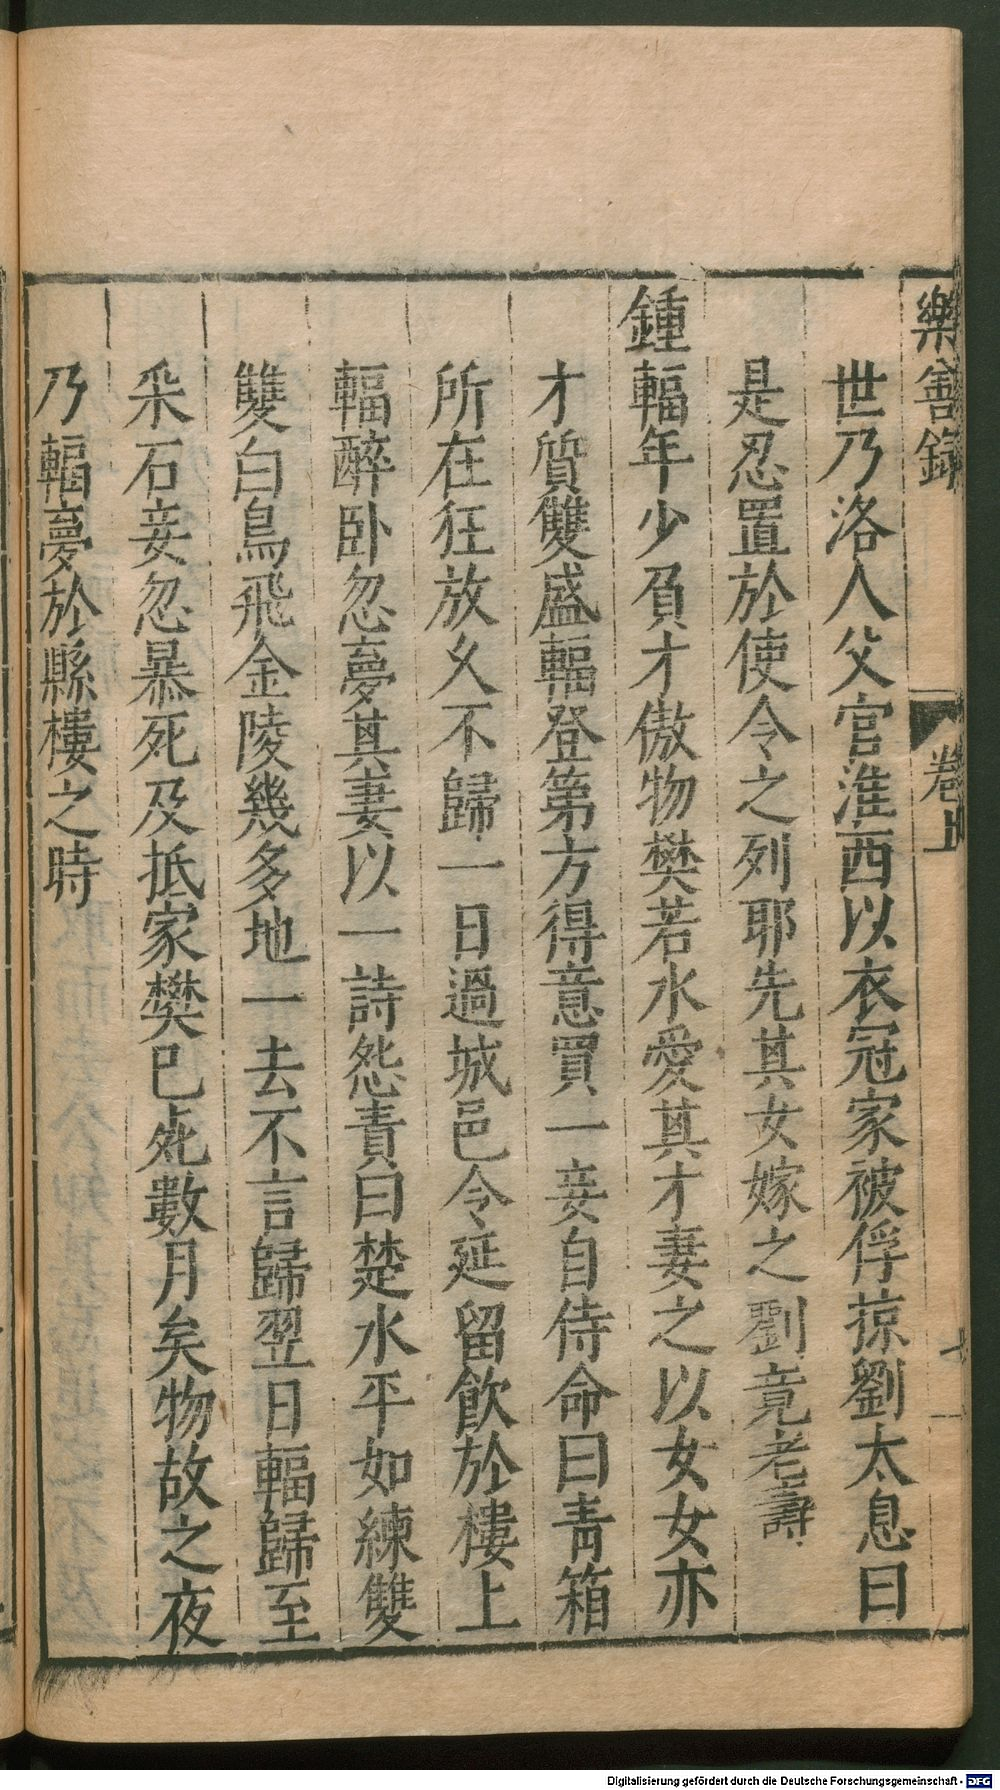 樂善錄 卷上 七
世乃洛人父官淮西以衣冠家被俘掠劉太息曰
是忍置於使令之列耶先其女嫁之劉竟老壽
鍾輻年少負才傲物樊若水愛其才妻之以女女亦
才質雙盛輻登第方得意買一妾自侍命曰青箱
所在狂放乆不歸一日過城邑令延留飲於樓上
輻醉卧忽夢其妻以一詩怨責曰楚水平如練雙
雙白鳥飛金陵幾多地一去不言歸翌日輻歸至
采石妾忽暴死及抵家樊已死數月矣物故之夜
乃輻夢於縣樓之時
Digitalisierung gefördert durch die Deutsche Forschungsgemeinschaft - DFG